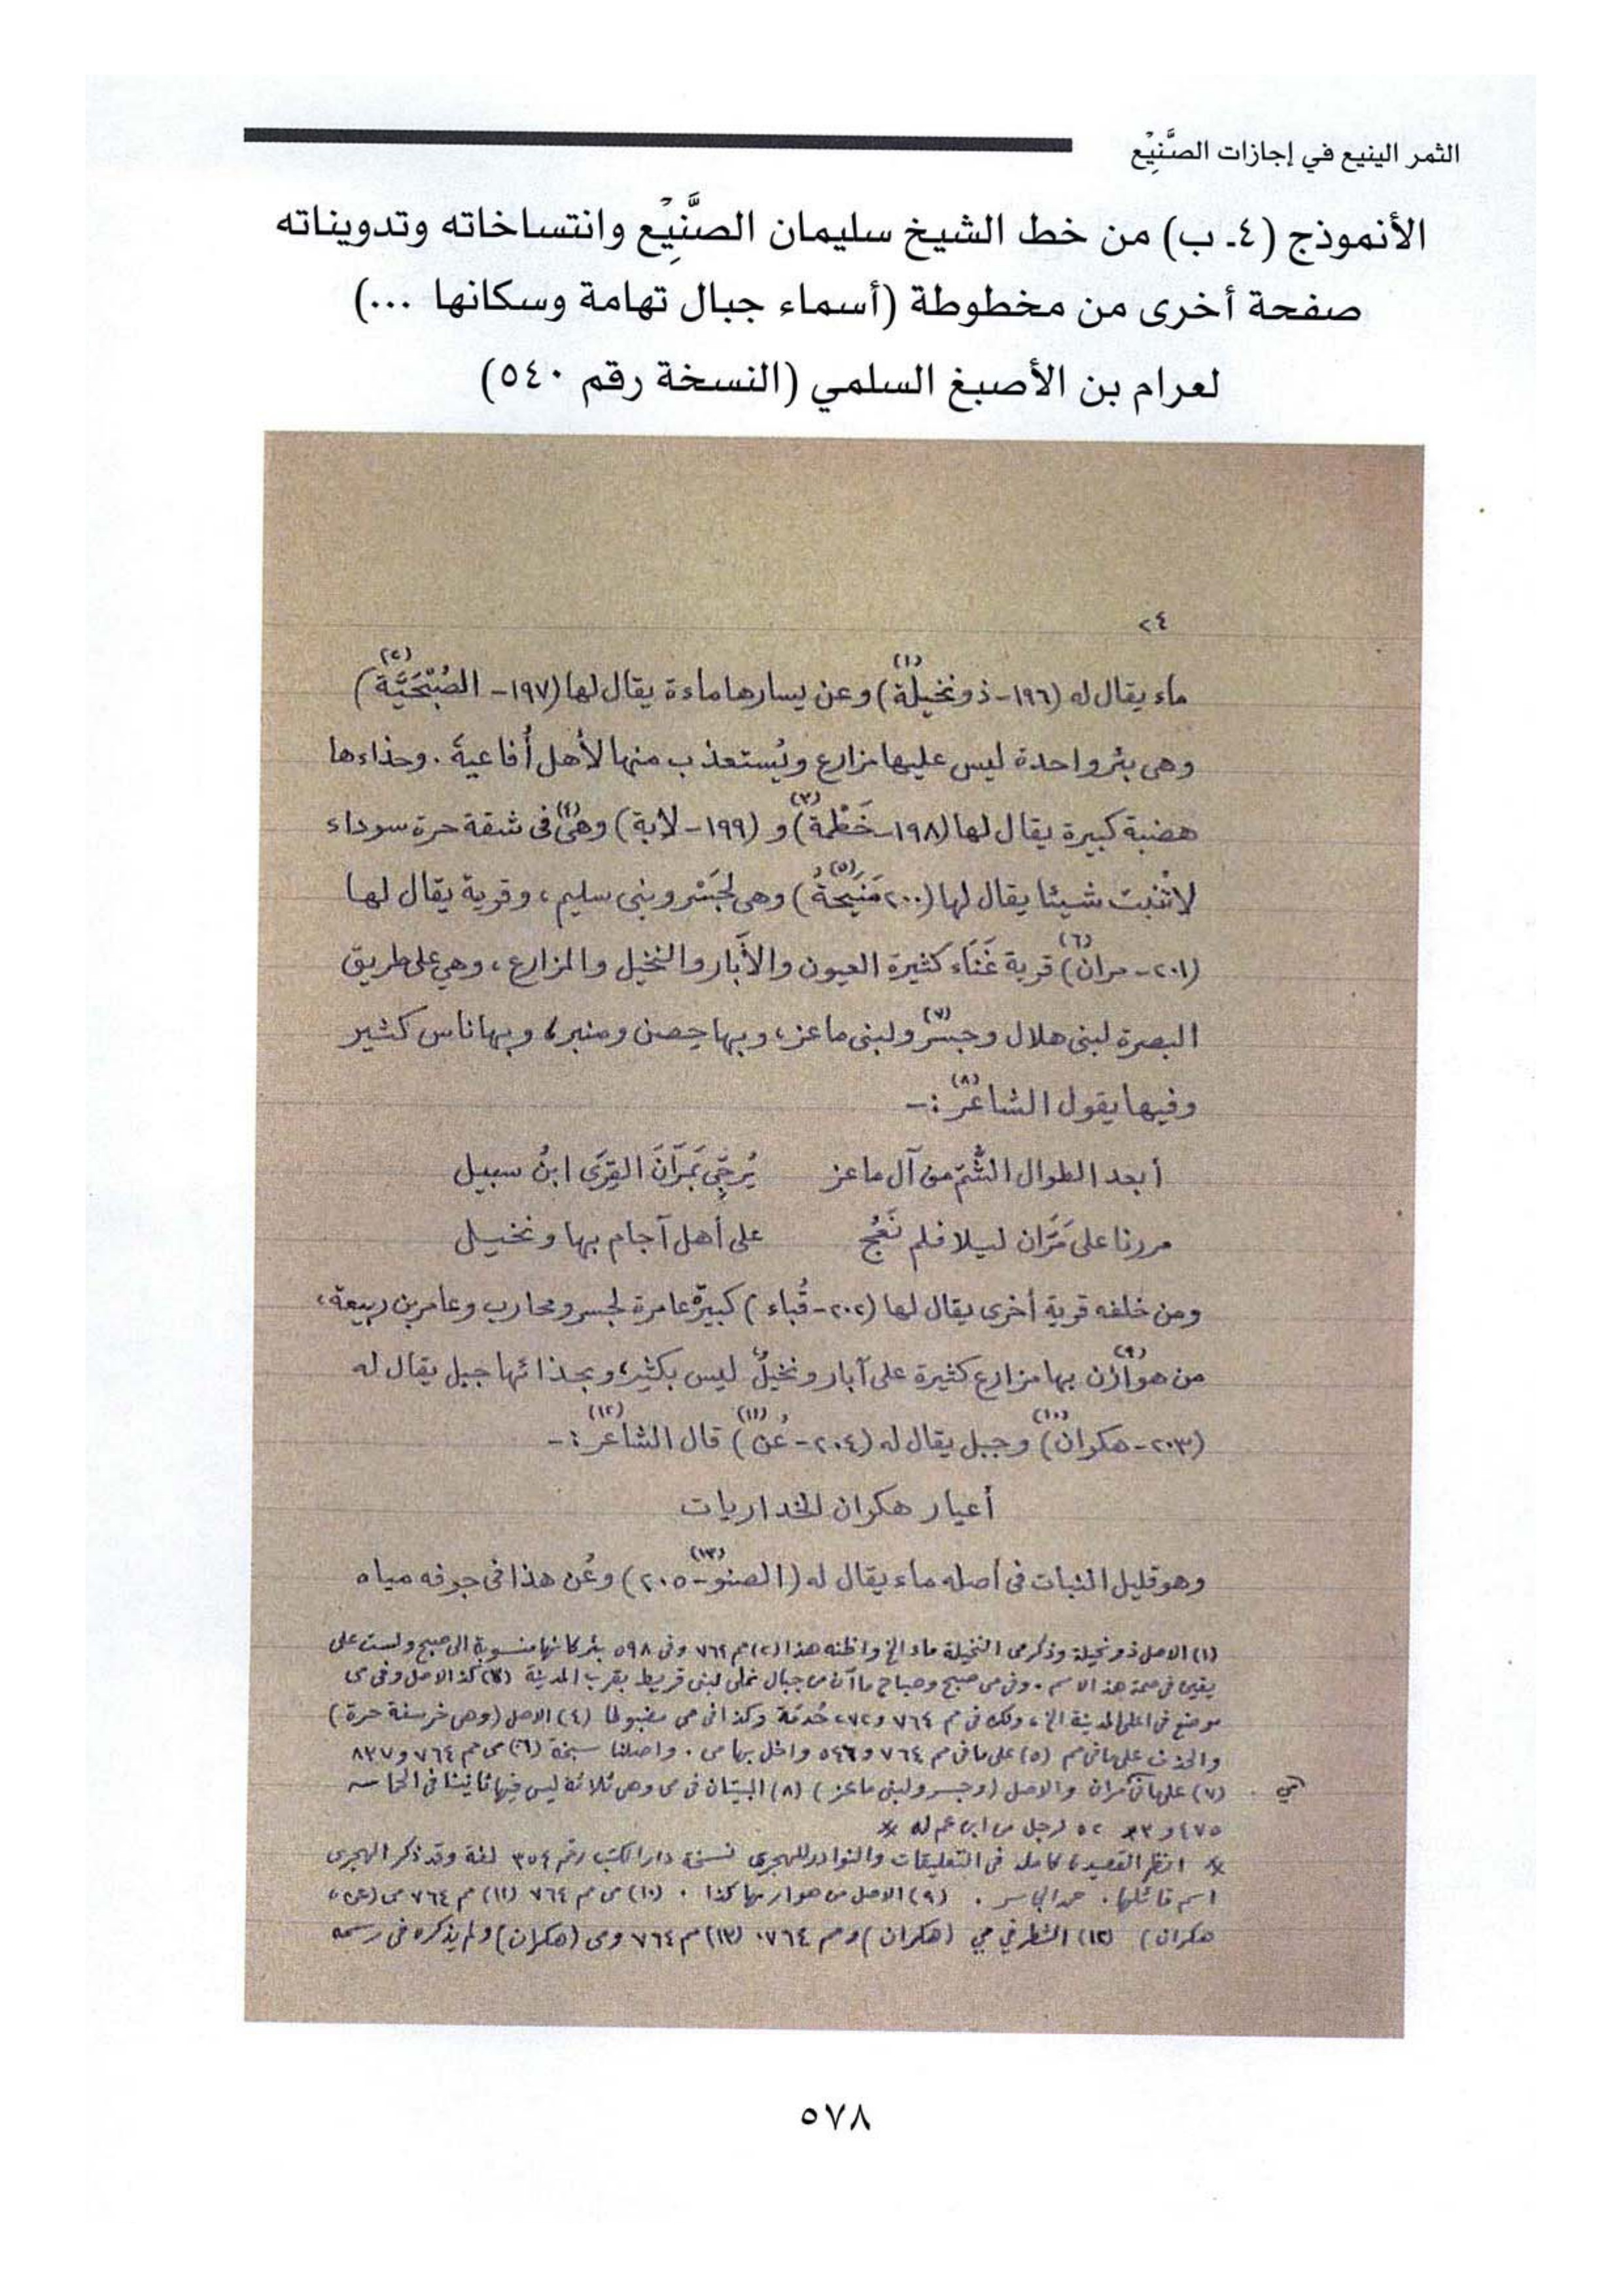 الثمر الينيع في إجازات الصَّنِيْع
الأنموذج (٤ـ ب) من خط الشيخ سليمان الصَّنِيْع وانتساخاته وتدويناته
صفحة أخرى من مخطوطة (أسماء جبال تهامة وسكانها ...)
لعرام بن الأصبغ السلمي (النسخة رقم ٥٤٠)
٢٤
ماء يقال له (١٩٦- ذو نخيلة)(١) وعن يسارها ماءة يقال لها (١٩٧- الصُبْحَيَّة)(٢)
وهى بئر واحدة ليس عليها مزارع ويُستعذب منها لأهل أُفاعية. وحذاءها
هضبة كبيرة يقال لها (١٩٨- خَطْمة)(٣) و (١٩٩- لابة) وهى(٤) فى شقة حرة سوداء
لاتُنبت شيئا يقال لها (٢٠٠ مَنيَحةُ)(٥) وهى لجَسْر وبنى سليم، وقرية يقال لها
(٢٠١- مران)(٦) قرية غَنَّاء كثيرة العيون والآبار والنخيل والمزارع، وهي على طريق
البصرة لبنى هلال وجسر(٧) ولبنى ماعز، وبها حصن ومنبر، وبها ناس كثير
وفيها يقول الشاعر(٨) :-
أبعد الطوال الشُّمّ من آل ماعز يُرجِّى بمَرّانَ القِرَى ابنُ سبيل
مررنا على مَرَّان ليلا فلم نَعُج على أهل آجام بها ونخيل
ومن خلفه قرية أخرى يقال لها (٢٠٢- قُباء) كبيرة عامرة لجسر ومحارب وعامر بن ربيعة،
من هوازن(٩) بها مزارع كثيرة على آبار ونخيلٌ ليس بكثير، وبحذائها جبل يقال له
(٢٠٣- هكران)(١٠) وجبل يقال له (٢٠٤- عُن)(١١) قال الشاعر(١٢) :-
أعيار هكران الخداريات
وهو قليل النبات فى أصله ماء يقال له (الصنو(١٣)- ٢٠٥) وعُن هذا فى جوفه مياه
(١) الاصل ذو نحيلة وذكر مى النخيلة ماء الخ واظنه هذا (٢) مم ٧٦٤ وفى ٥٩٨ بئر كانها منسوبة الى صبح ولست على
يقين فى صحة هذا الاسم. وفى مى صبح وصباح ماآن من جبال نملى لبنى قريط بقرب المدينة (٣) كذا الاصل وفى مى
موضع فى اعلى المدينة الخ، ولكن فى مم ٧٦٤ و٢٧٢ خُدمَة وكذا فى مى مضبوطا (٤) الاصل (وهى خر سفة حرة)
والحذف على ما فى مم (٥) على ما فى مم ٧٦٤ و٥٤٦ واخل بها مى. واصلنا سبخة (٦) مى مم ٧٦٤ و٨٣٧
(٧) على ما فى مران والاصل (وجسر ولبنى ماعز) (٨) البيتان فى مى وهى ثلاثة ليس فيها ثانينا فى الحماسة
٤٧٥ و ٣ ٥٢ لرجل من ابن عم له *
* انظر القصيدة كاملة فى التعليقات والنوادر للهجرى نسخة دار الكتب رقم ٣٥٤ لغة وقد ذكر الهجرى
اسم قائلها. حمد الجاسر. (٩) الاصل من هوار بها كذا. (١٠) مى مم ٧٦٤ (١١) مم ٧٦٤ مى (عن،
هكران) (١٢) الشطر في مي (هكران) ومم ٧٦٤. (١٣) مم ٧٦٤ ومى (هكران) ولم يذكره فى رسمه
٥٧٨